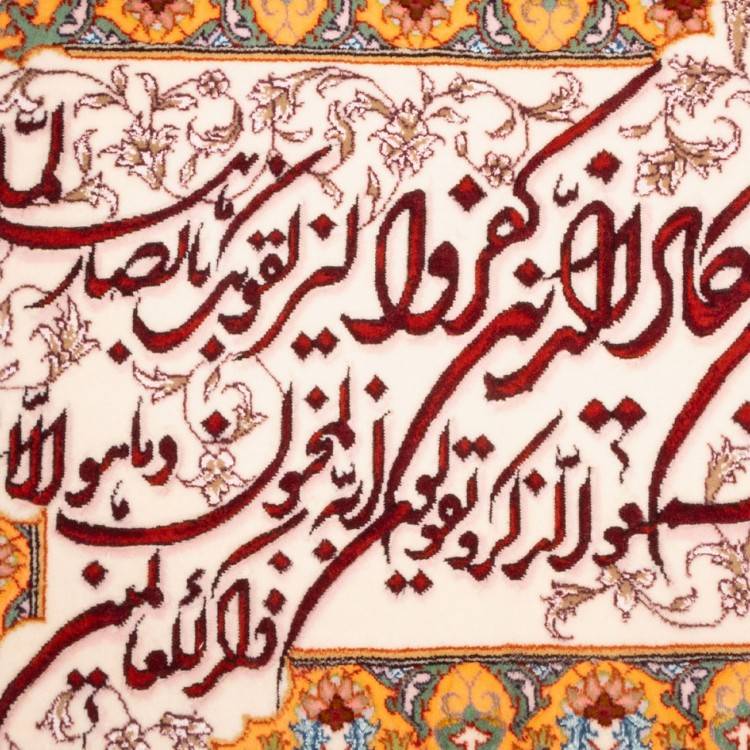 يكاد الذين كفروا ليزلقونك بأبصارهم لما
سمعوا الذكر ويقولون إنه لمجنون وما هو إلا
ذكر للعالمين